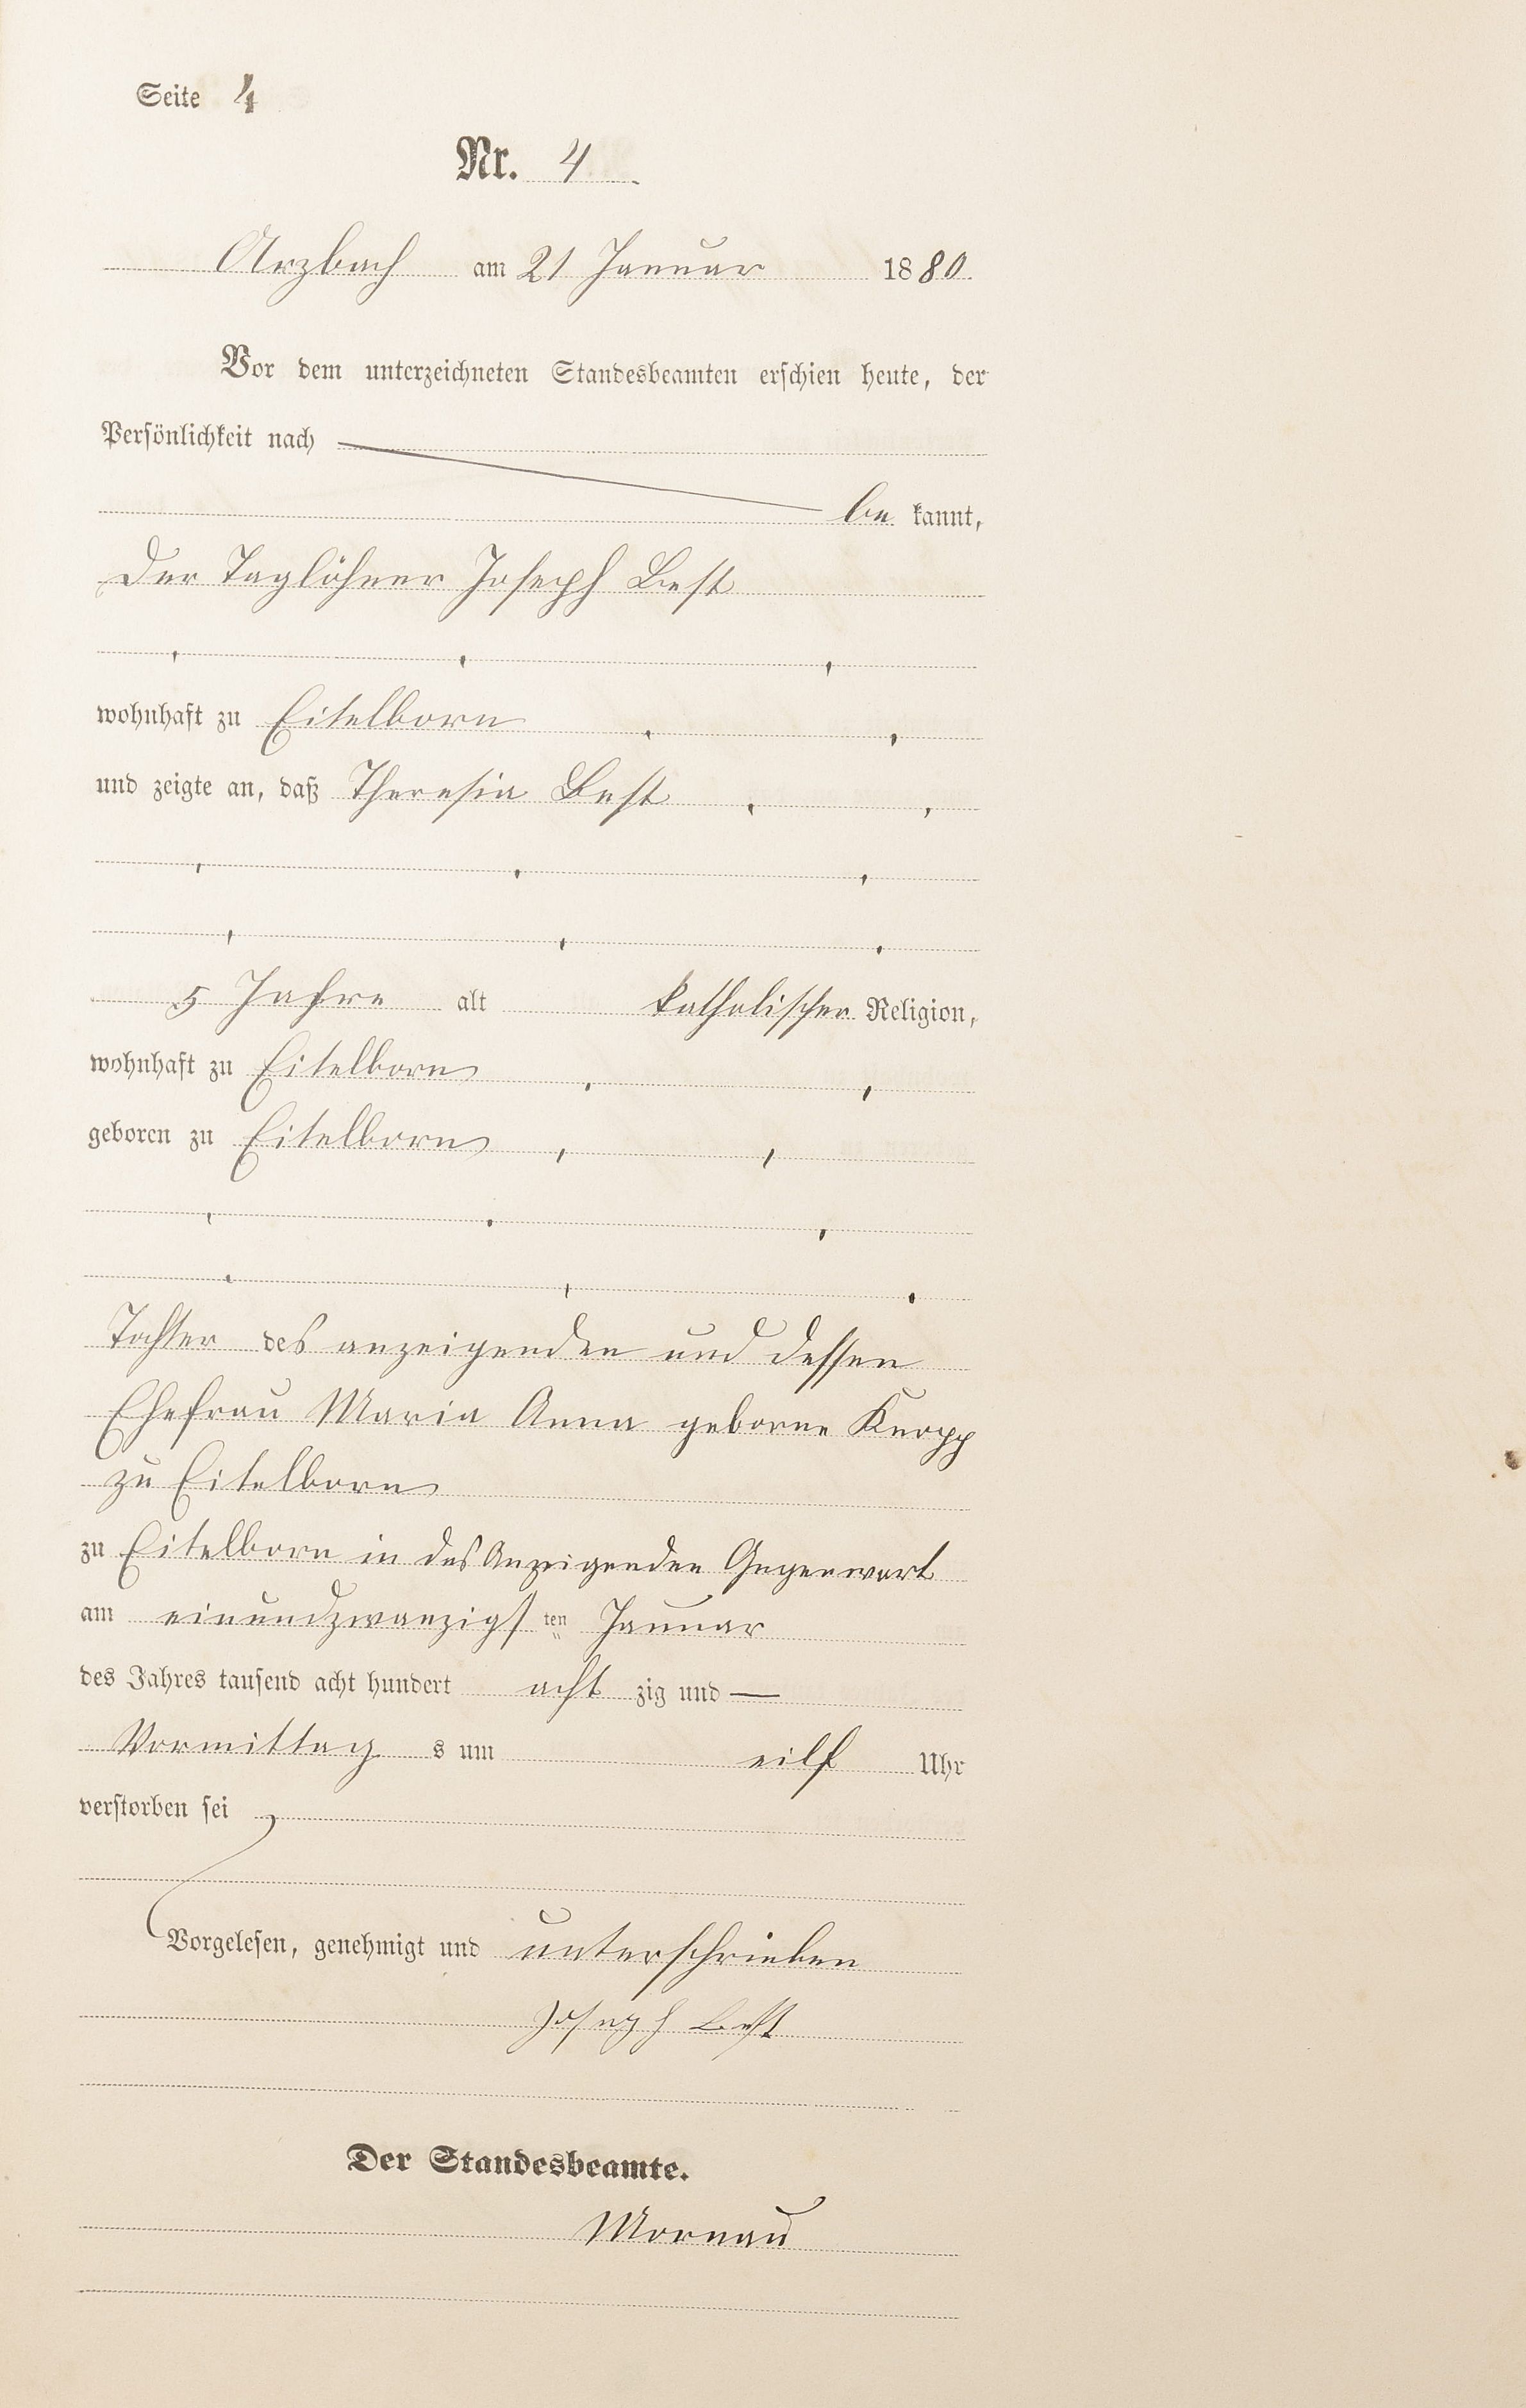 Seite 4
Nr. 4
Arzbach am 21 Januar 1880.
Vor dem unterzeichneten Standesbeamten erschien heute, der
Persönlichkeit nach
be kannt,
der Taglöhner Joseph Best
wohnhaft zu Eitelborn
und zeigte an, daß Theresia Best
5 Jahre alt katholischer Religion,
wohnhaft zu Eitelborn
geboren zu Eitelborn
Tochter des anzeigenden und dessen
Ehefrau Maria Anna geborne Knopp
zu Eitelborn
zu Eitelborn in des Anzeigenden Gegenwart
am einundzwanzigs ten Januar
des Jahres tausend acht hundert acht zig und —
Vormittag s um eilf Uhr
verstorben sei
Vorgelesen, genehmigt und unterschrieben
Joseph Best
Der Standesbeamte.
Mornau